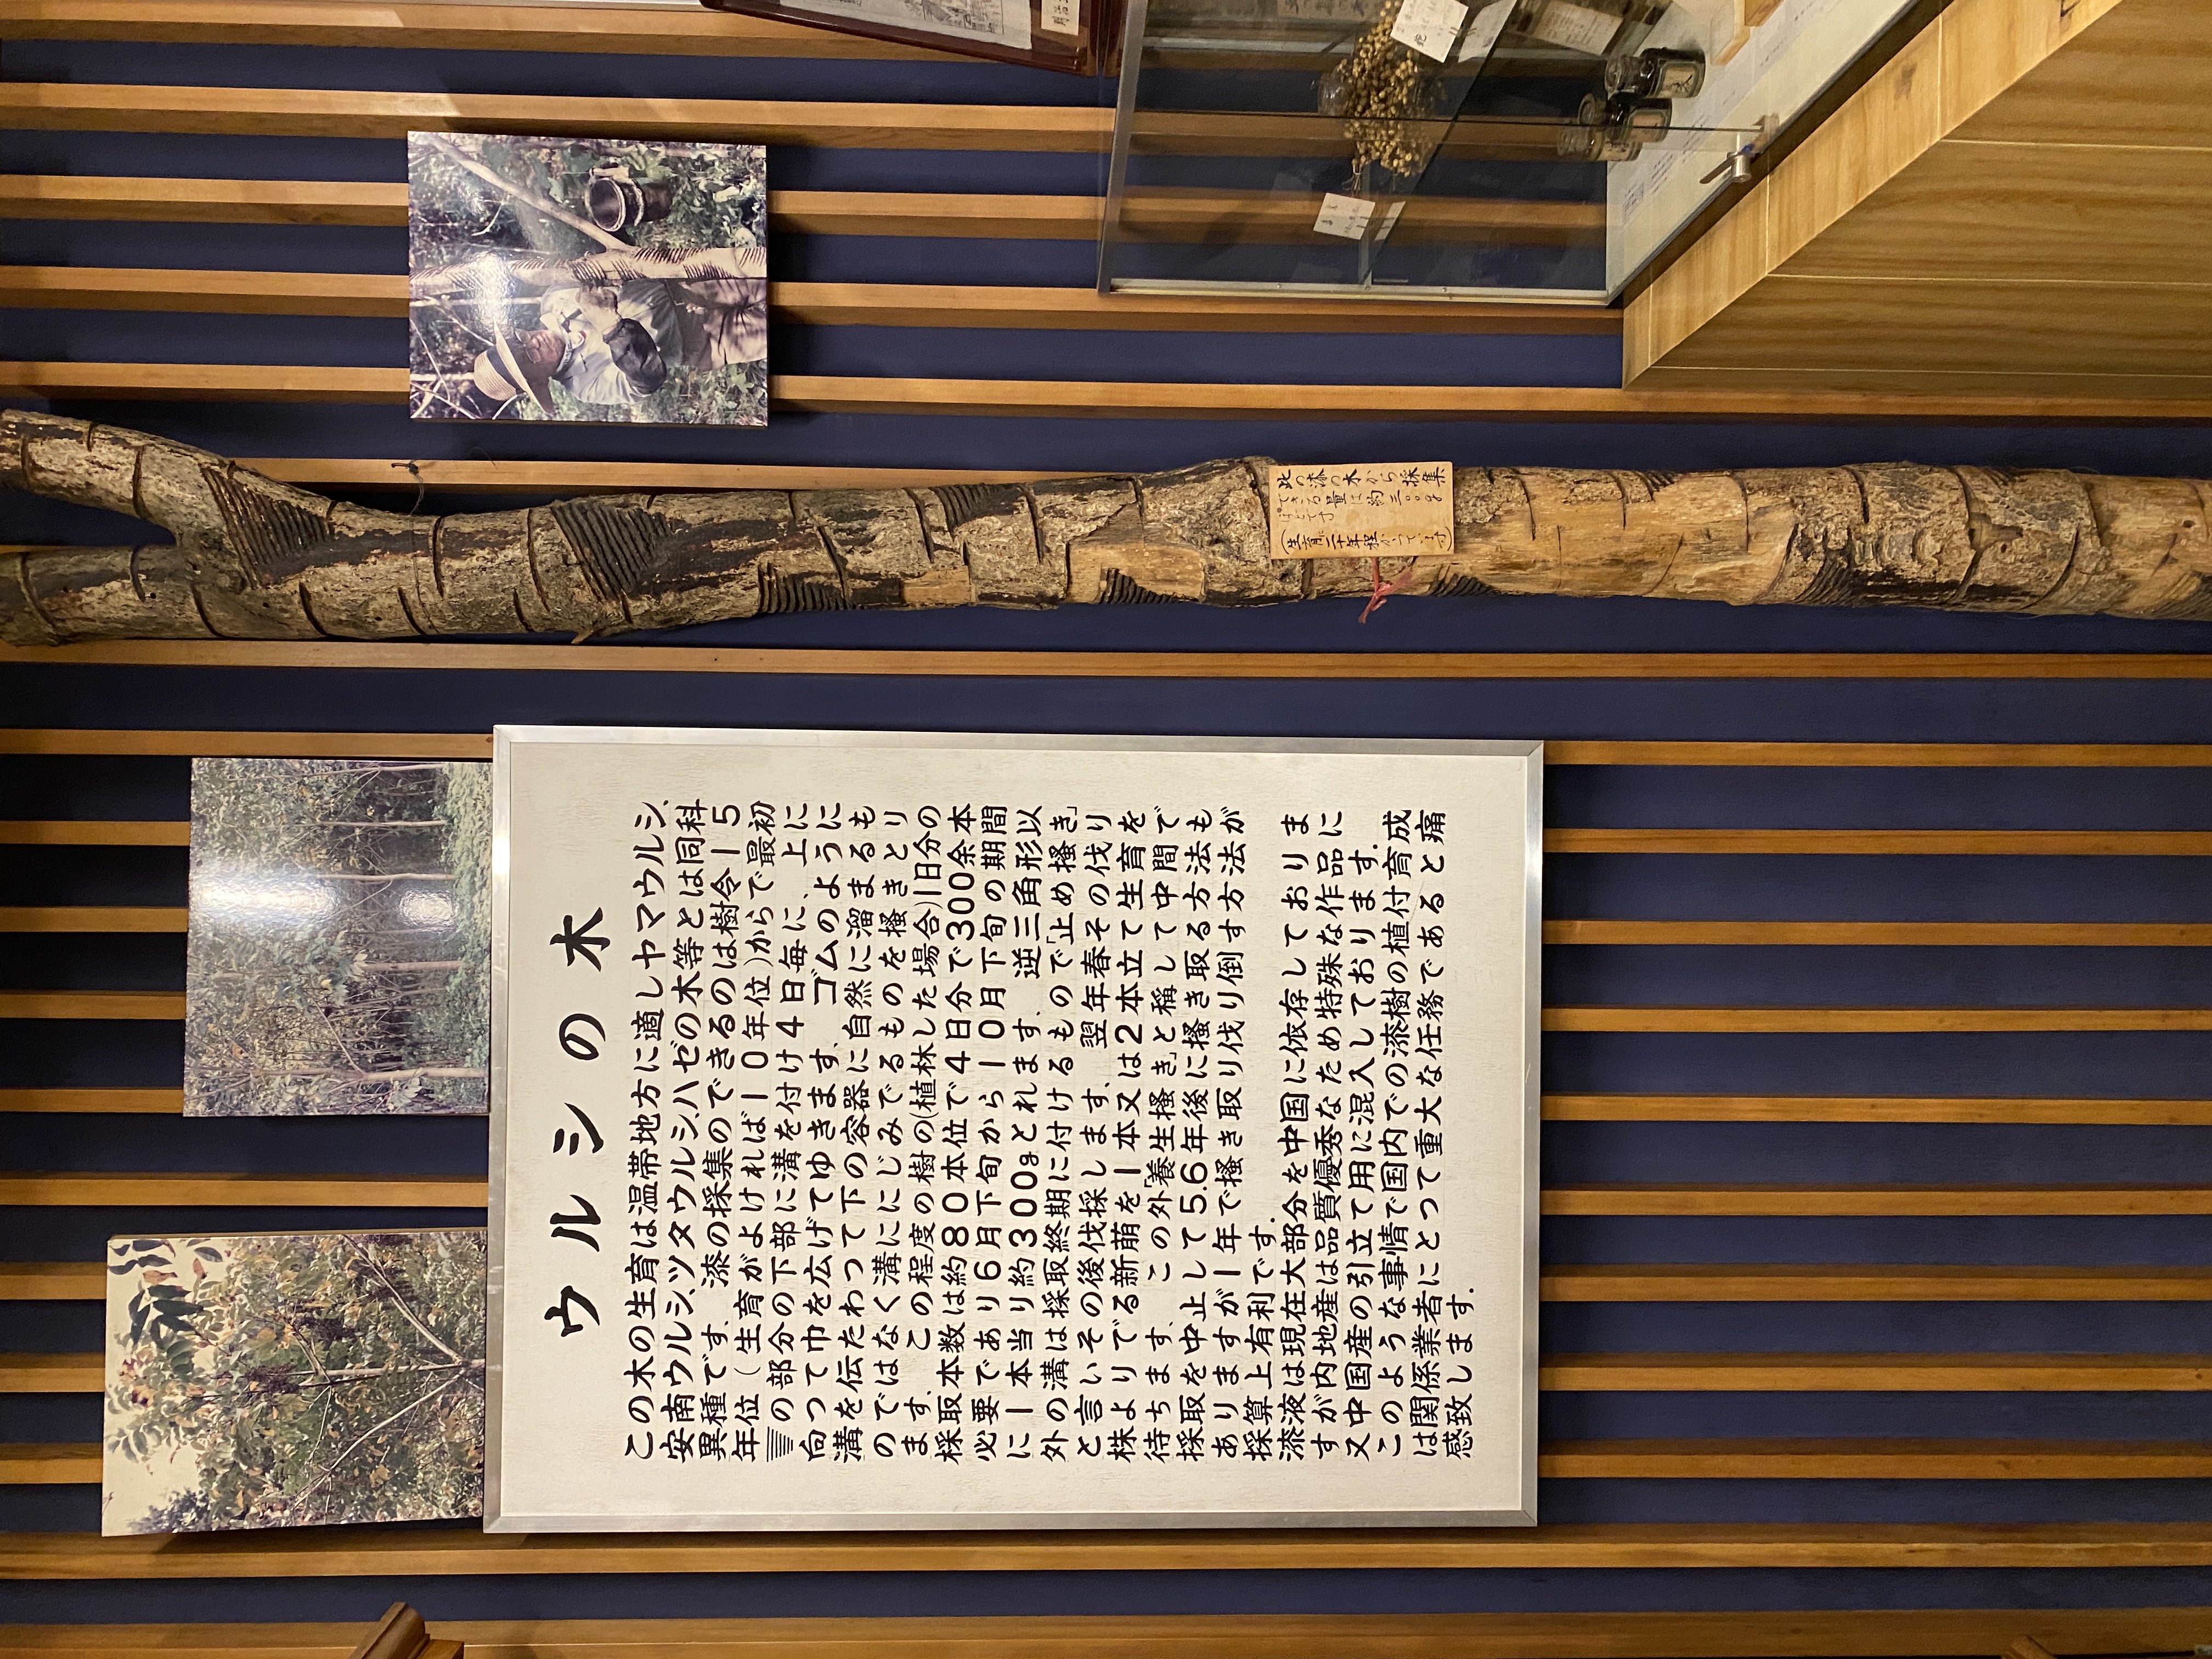 ウルシの木
この木の生育は温帯地方に適しヤマウルシ、
安南ウルシ、ツタウルシ、ハゼの木等とは同科
異種です。漆の採集のできるのは樹令15
年位(生育がよければ10年位)からで最初
の部分の下部に溝を付け4日毎に、上に
向って巾を広げてゆきます。ゴムのように
溝を伝たわって下の容器に自然に溜まるも
のではなく溝ににじみでるものを掻きとり
ます。この程度の樹の(植林した場合)1日分の
採取本数は約80本位で4日分で300余本
必要であり6月下旬から10月下旬の期間
に1本当り約300gとれます。逆三角形以
外の溝は採取終期に付けるもので「止め掻き」
と言いその後伐採します。翌年春その伐り
株よりでる新萠を1本又は2本立て生育を
待ちます。この外「養生掻き」と稱して中間で
採取を中止して5.6年後に掻き取る方法も
ありますが1年で掻き取り伐り倒す方法が
採算上有利です。
漆液は現在大部分を中国に依存しておりま
すが内地産は品質優秀なため特殊な作品に
又中国産の引立て用に混入しております。
このような事情で国内での漆樹の植付育成
は関係業者にとって重大な任務であると痛
感致します。
此の漆の木から採集
できる量は約三〇〇g
ほどです
(生育二十年程かゝってます)